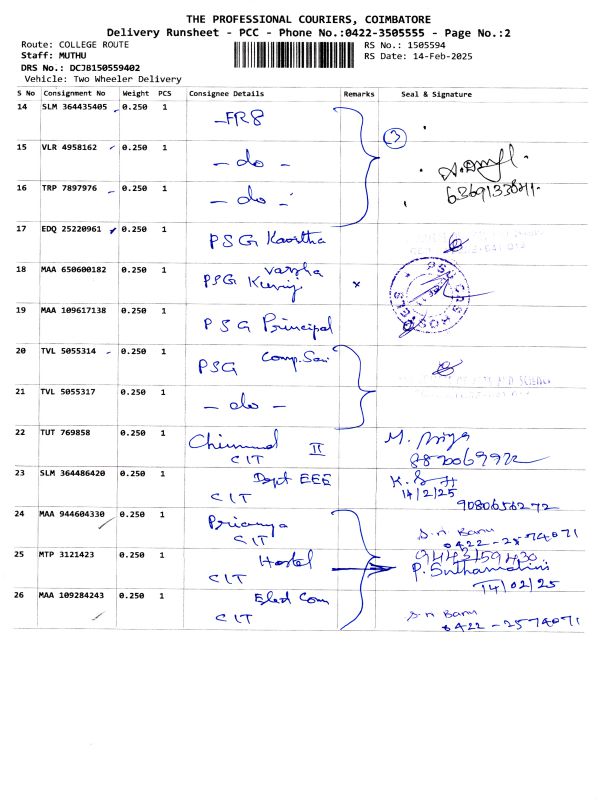 THE PROFESSIONAL COURIERS, COIMBATORE
Delivery Runsheet - PCC - Phone No.:0422-3505555 - Page No.:2
Route: COLLEGE ROUTE RS No.: 1505594
Staff: MUTHU RS Date: 14-Feb-2025
DRS No.: DCJB150559402
Vehicle: Two Wheeler Delivery
S No Consignment No Weight PCS Consignee Details Remarks Seal & Signature
14 SLM 364435405 0.250 1 FR8
3
15 VLR 4958162 0.250 1 - do -
16 TRP 7897976 0.250 1 - do -
17 EDQ 25220961 0.250 1 PSG Kavitha
18 MAA 650600182 0.250 1 PSG x
19 MAA 109617138 0.250 1 PSG Principal
20 TVL 5055314 0.250 1 PSG Comp. Sci
21 TVL 5055317 0.250 1 - do -
22 TUT 769858 0.250 1 II CIT M. Priya
23 SLM 364486420 0.250 1 Dept EEE CIT
14/2/25
9080656272
24 MAA 944604330 0.250 1 CIT S.n Banu
0422-2574071
25 MTP 3121423 0.250 1 Hostel CIT 9443159430
P. Suthamathi
14/02/25
26 MAA 109284243 0.250 1 CIT S.n Banu
0422-2574071